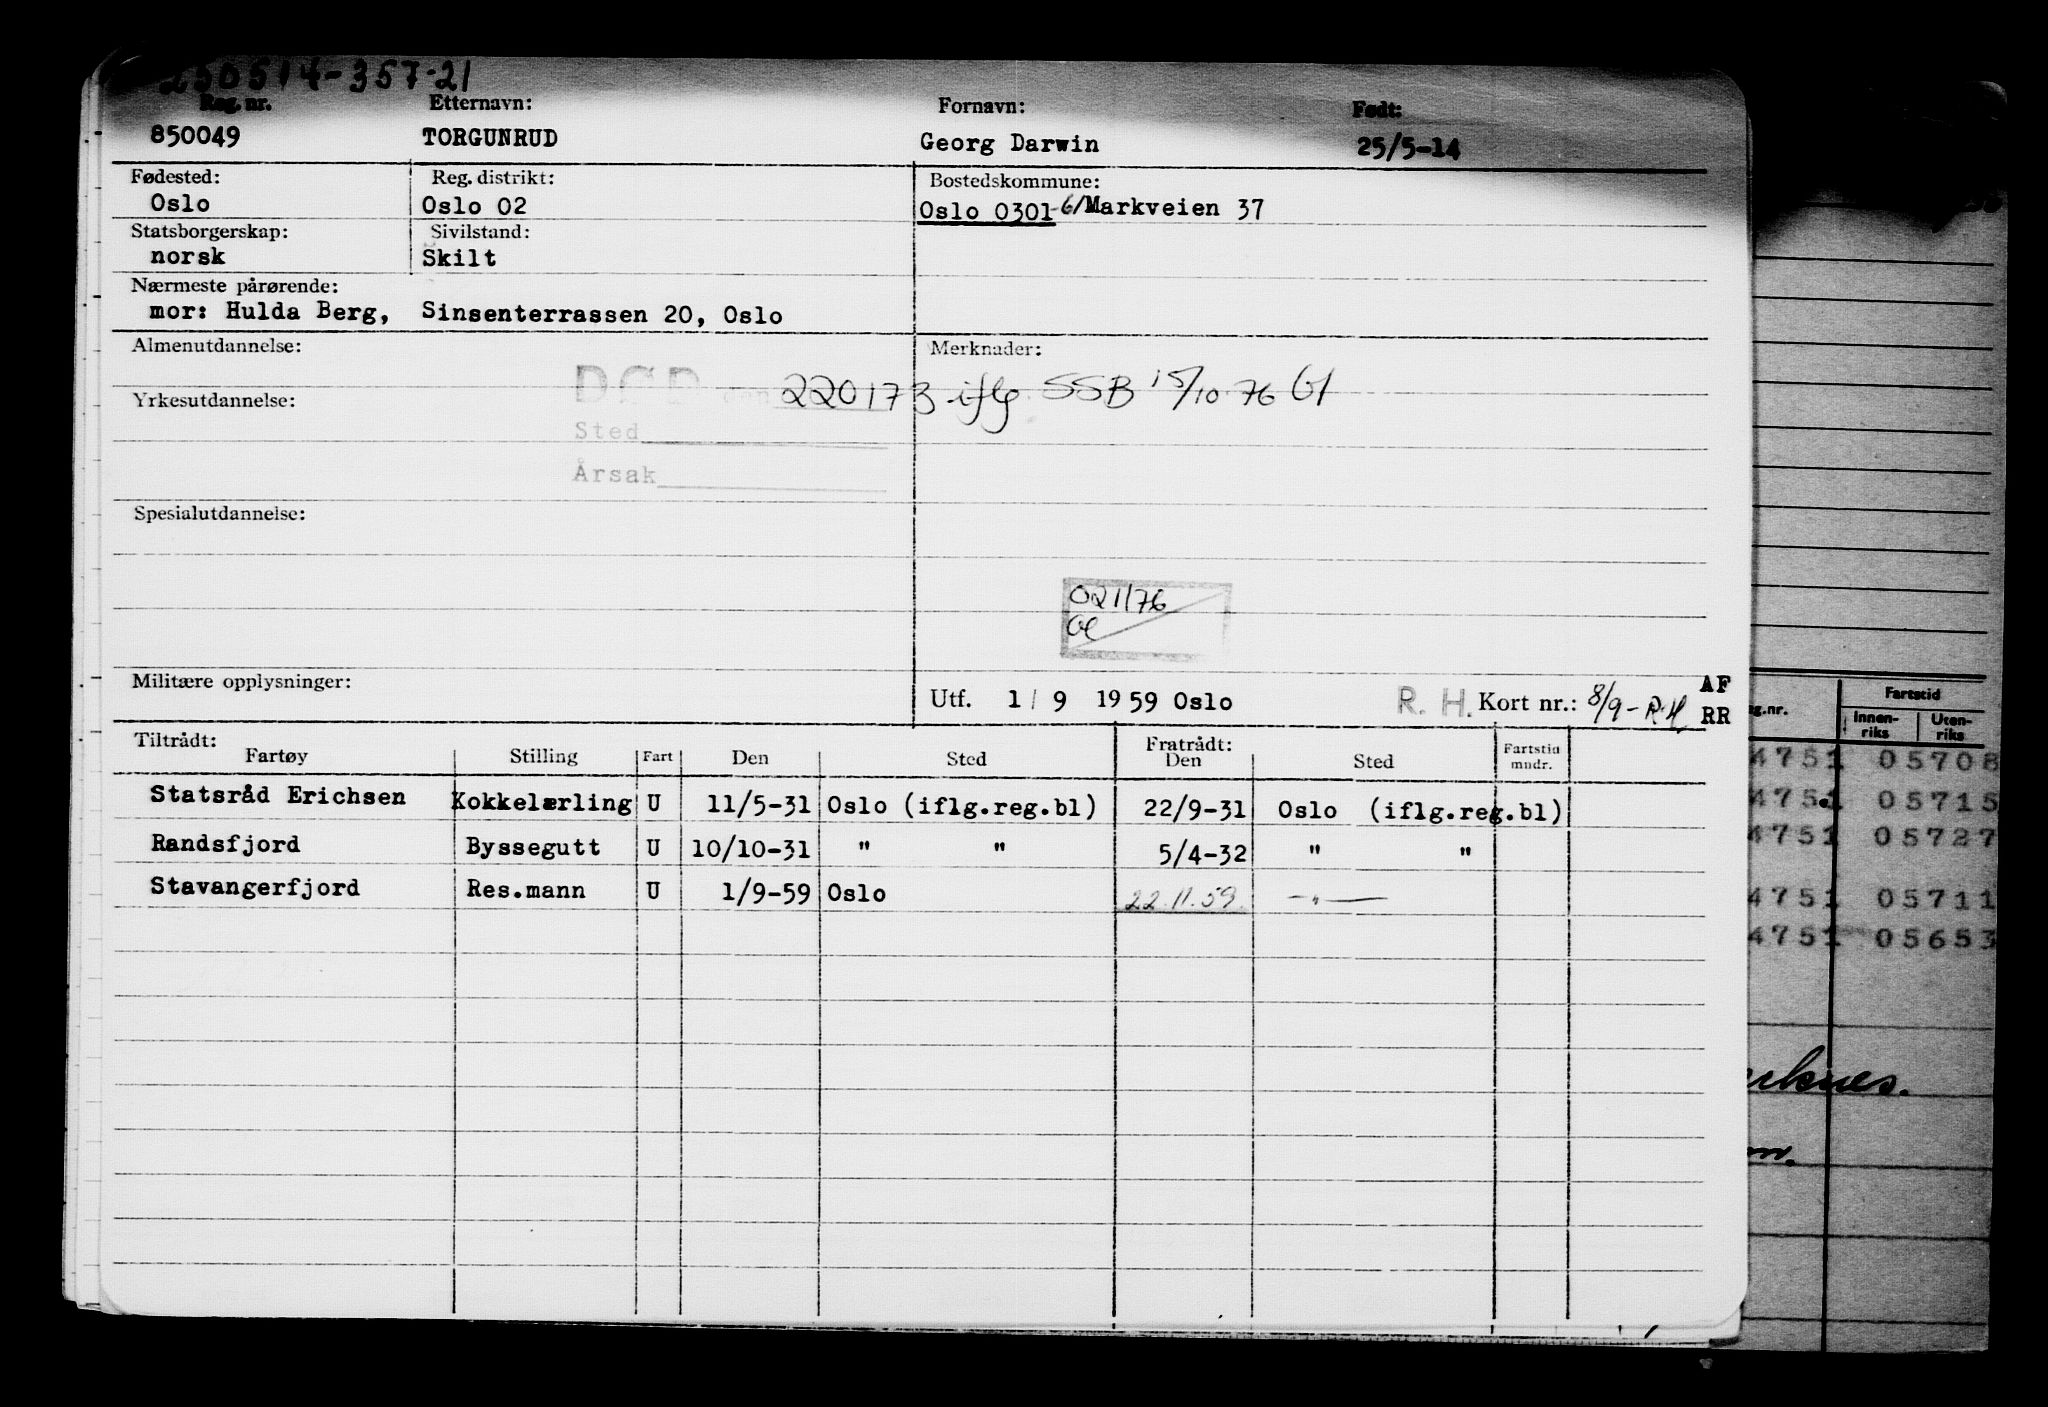 250514-357-21
Reg. nr. Etternavn: Fornavn: Født:
850049 TORGUNRUD Georg Darwin 25/5-14
Fødested: Reg. distrikt: Bostedskommune:
Oslo Oslo 02 Oslo 0301 Markveien 37
Statsborgerskap: Sivilstand:
norsk Skilt
Nærmeste pårørende:
mor: Hulda Berg, Sinsenterrassen 20, Oslo
Almenutdannelse: Merknader:
DØD den 220173 iflg SSB 15/10-76
Yrkesutdannelse:
Sted
Årsak
Spesialutdannelse:
021/76
Militære opplysninger: Utf. 1/9 1959 Oslo R. H. Kort nr.: 8/9-R.H AF
RR
Tiltrådt: Fratrådt:
Fartøy Stilling Fart Den Sted Den Sted Fartstid mndr.
Statsråd Erichsen Kokkelærling U 11/5-31 Oslo (iflg.reg.bl) 22/9-31 Oslo (iflg.reg.bl)
Randsfjord Byssegutt U 10/10-31 " " 5/4-32 " "
Stavangerfjord Res.mann U 1/9-59 Oslo 22.11.59. -"-
g.nr. Fartstid
Innenriks Utenriks
4751 05708
4751 05715
4751 05727
4751 05711
4751 05653